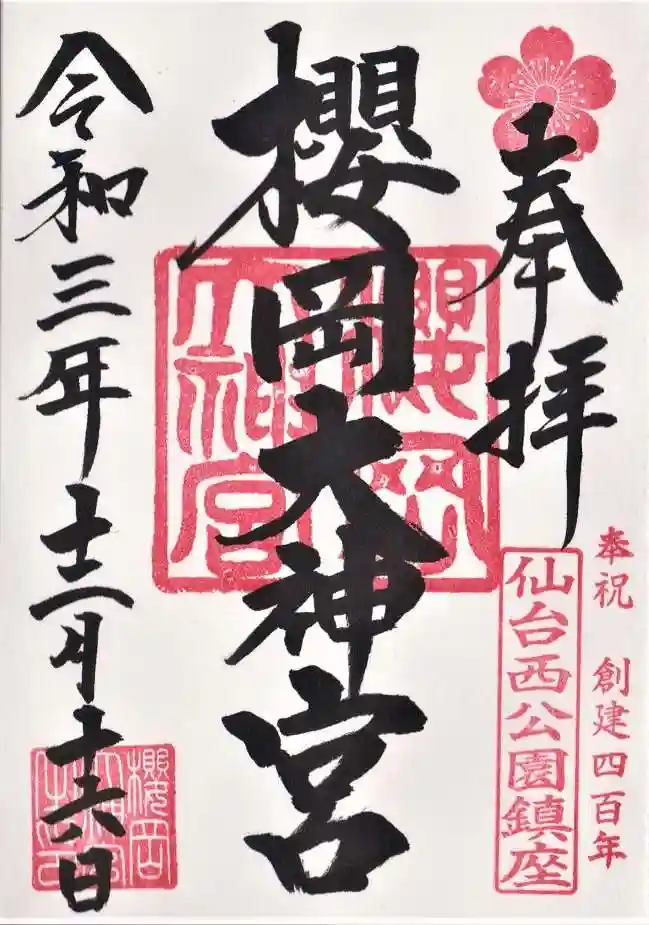 奉拝
奉祝 創建四百年
仙台西公園鎮座
櫻岡大神宮
櫻岡
大神宮
令和三年十二月十六日
櫻岡
大神宮